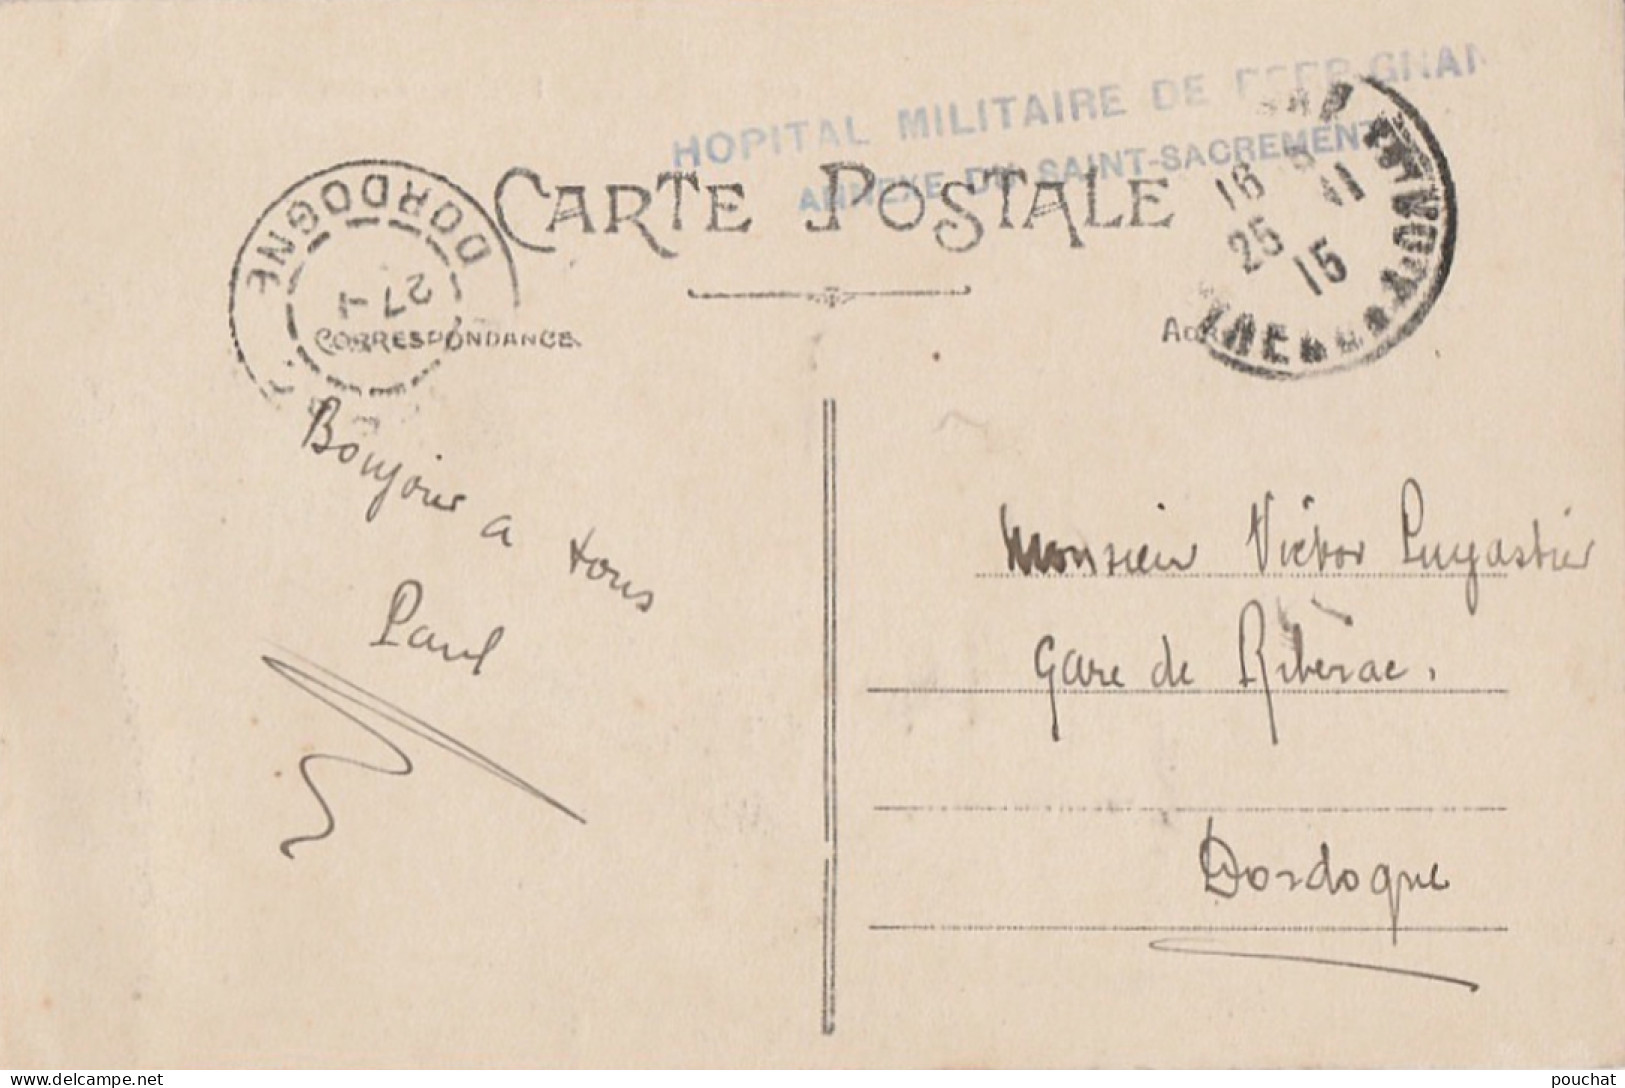 HOPITAL MILITAIRE DE
ANNEXE DU SAINT-SACREMENT
CARTE POSTALE
DORDOGNE
27
16
25 11
15
CORRESPONDANCE
Bonjour a tous
Paul
Monsieur Victor Puygastier
Gare de Riberac.
Dordogne
delcampe.net
pouchat